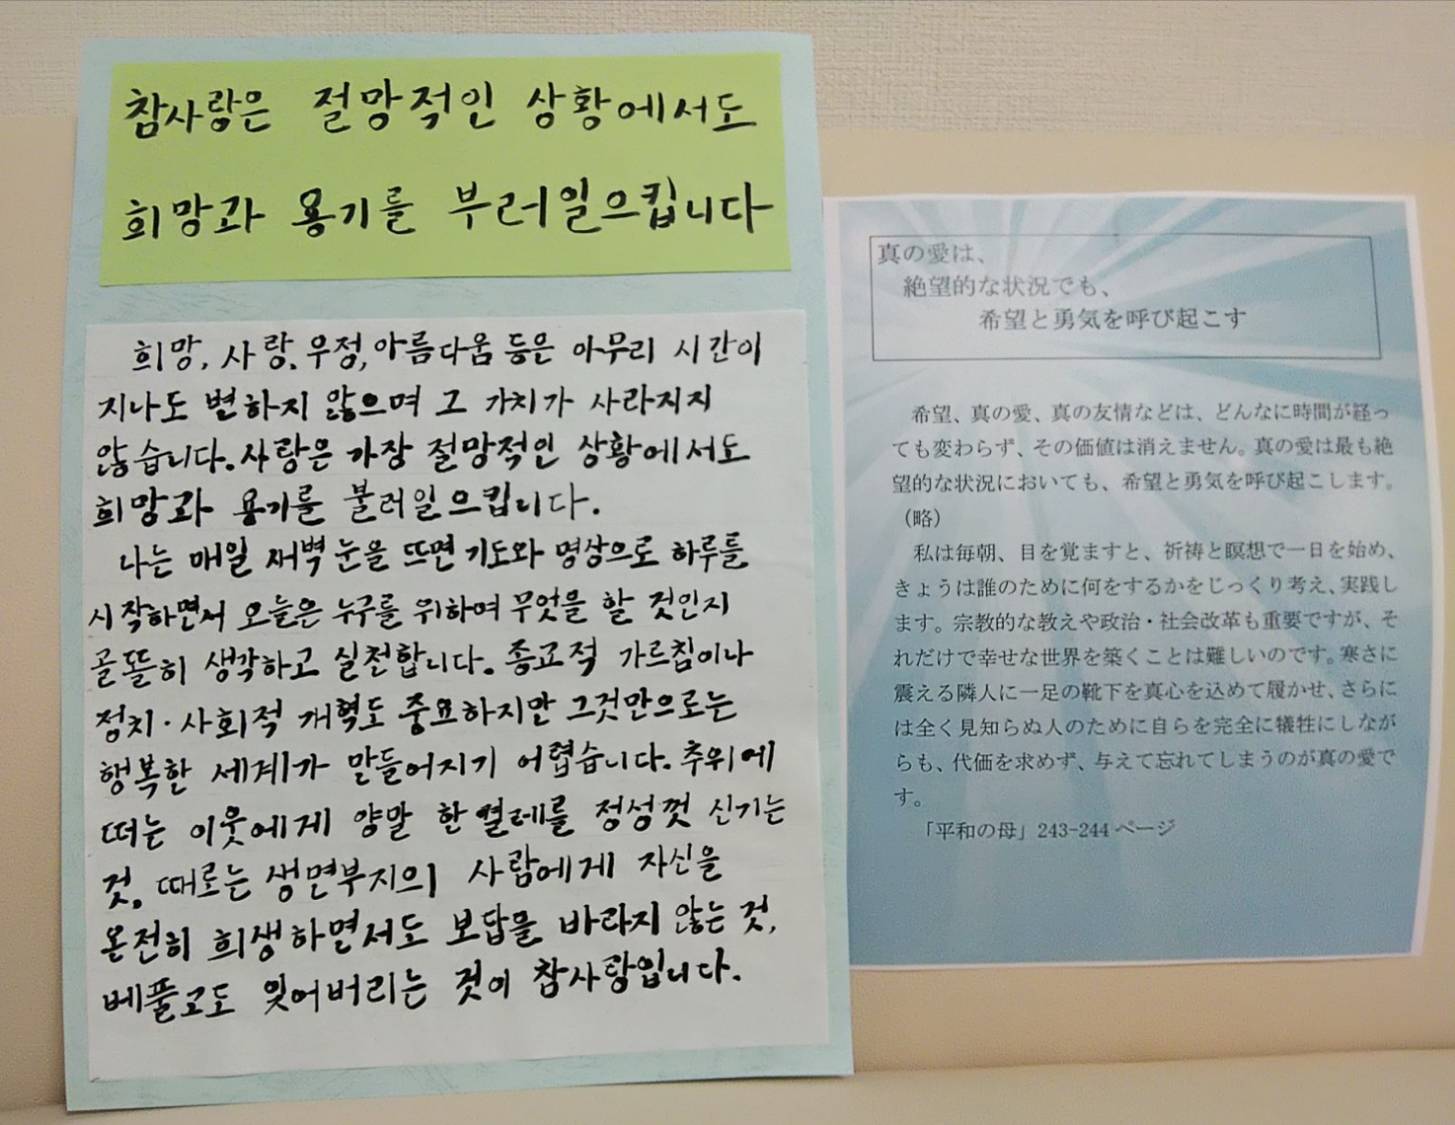 참사랑은 절망적인 상황에서도
희망과 용기를 부러일으킵니다
희망, 사랑, 우정, 아름다움 등은 아무리 시간이
지나도 변하지 않으며 그 가치가 사라지지
않습니다. 사랑은 가장 절망적인 상황에서도
희망과 용기를 불러일으킵니다.
나는 매일 새벽 눈을 뜨면 기도와 명상으로 하루를
시작하면서 오늘은 누구를 위하여 무엇을 할 것인지
골똘히 생각하고 실천합니다. 종교적 가르침이나
정치·사회적 개혁도 중요하지만 그것만으로는
행복한 세계가 만들어지기 어렵습니다. 추위에
떠는 이웃에게 양말 한 켤레를 정성껏 신기는
것, 때로는 생면부지의 사람에게 자신을
온전히 희생하면서도 보답을 바라지 않는 것,
베풀고도 잊어버리는 것이 참사랑입니다.
真の愛は、
絶望的な状況でも、
希望と勇気を呼び起こす
希望、真の愛、真の友情などは、どんなに時間が経っ
ても変わらず、その価値は消えません。真の愛は最も絶
望的な状況においても、希望と勇気を呼び起こします。
（略）
私は毎朝、目を覚ますと、祈祷と瞑想で一日を始め、
きょうは誰のために何をするかをじっくり考え、実践し
ます。宗教的な教えや政治・社会改革も重要ですが、そ
れだけで幸せな世界を築くことは難しいのです。寒さに
震える隣人に一足の靴下を真心を込めて履かせ、さらに
は全く見知らぬ人のために自らを完全に犠牲にしなが
らも、代価を求めず、与えて忘れてしまうのが真の愛で
す。
「平和の母」243-244 ページ